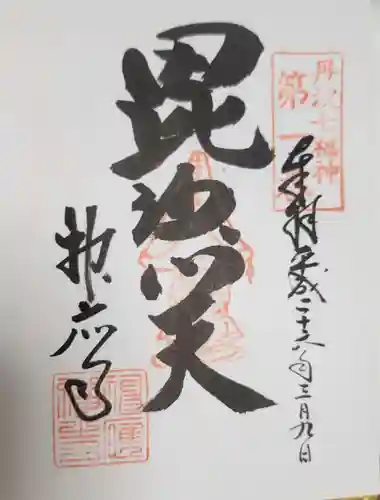 丹波七福神
第一番
奉拝 平成二十八年三月九日
毘沙門天
神応寺